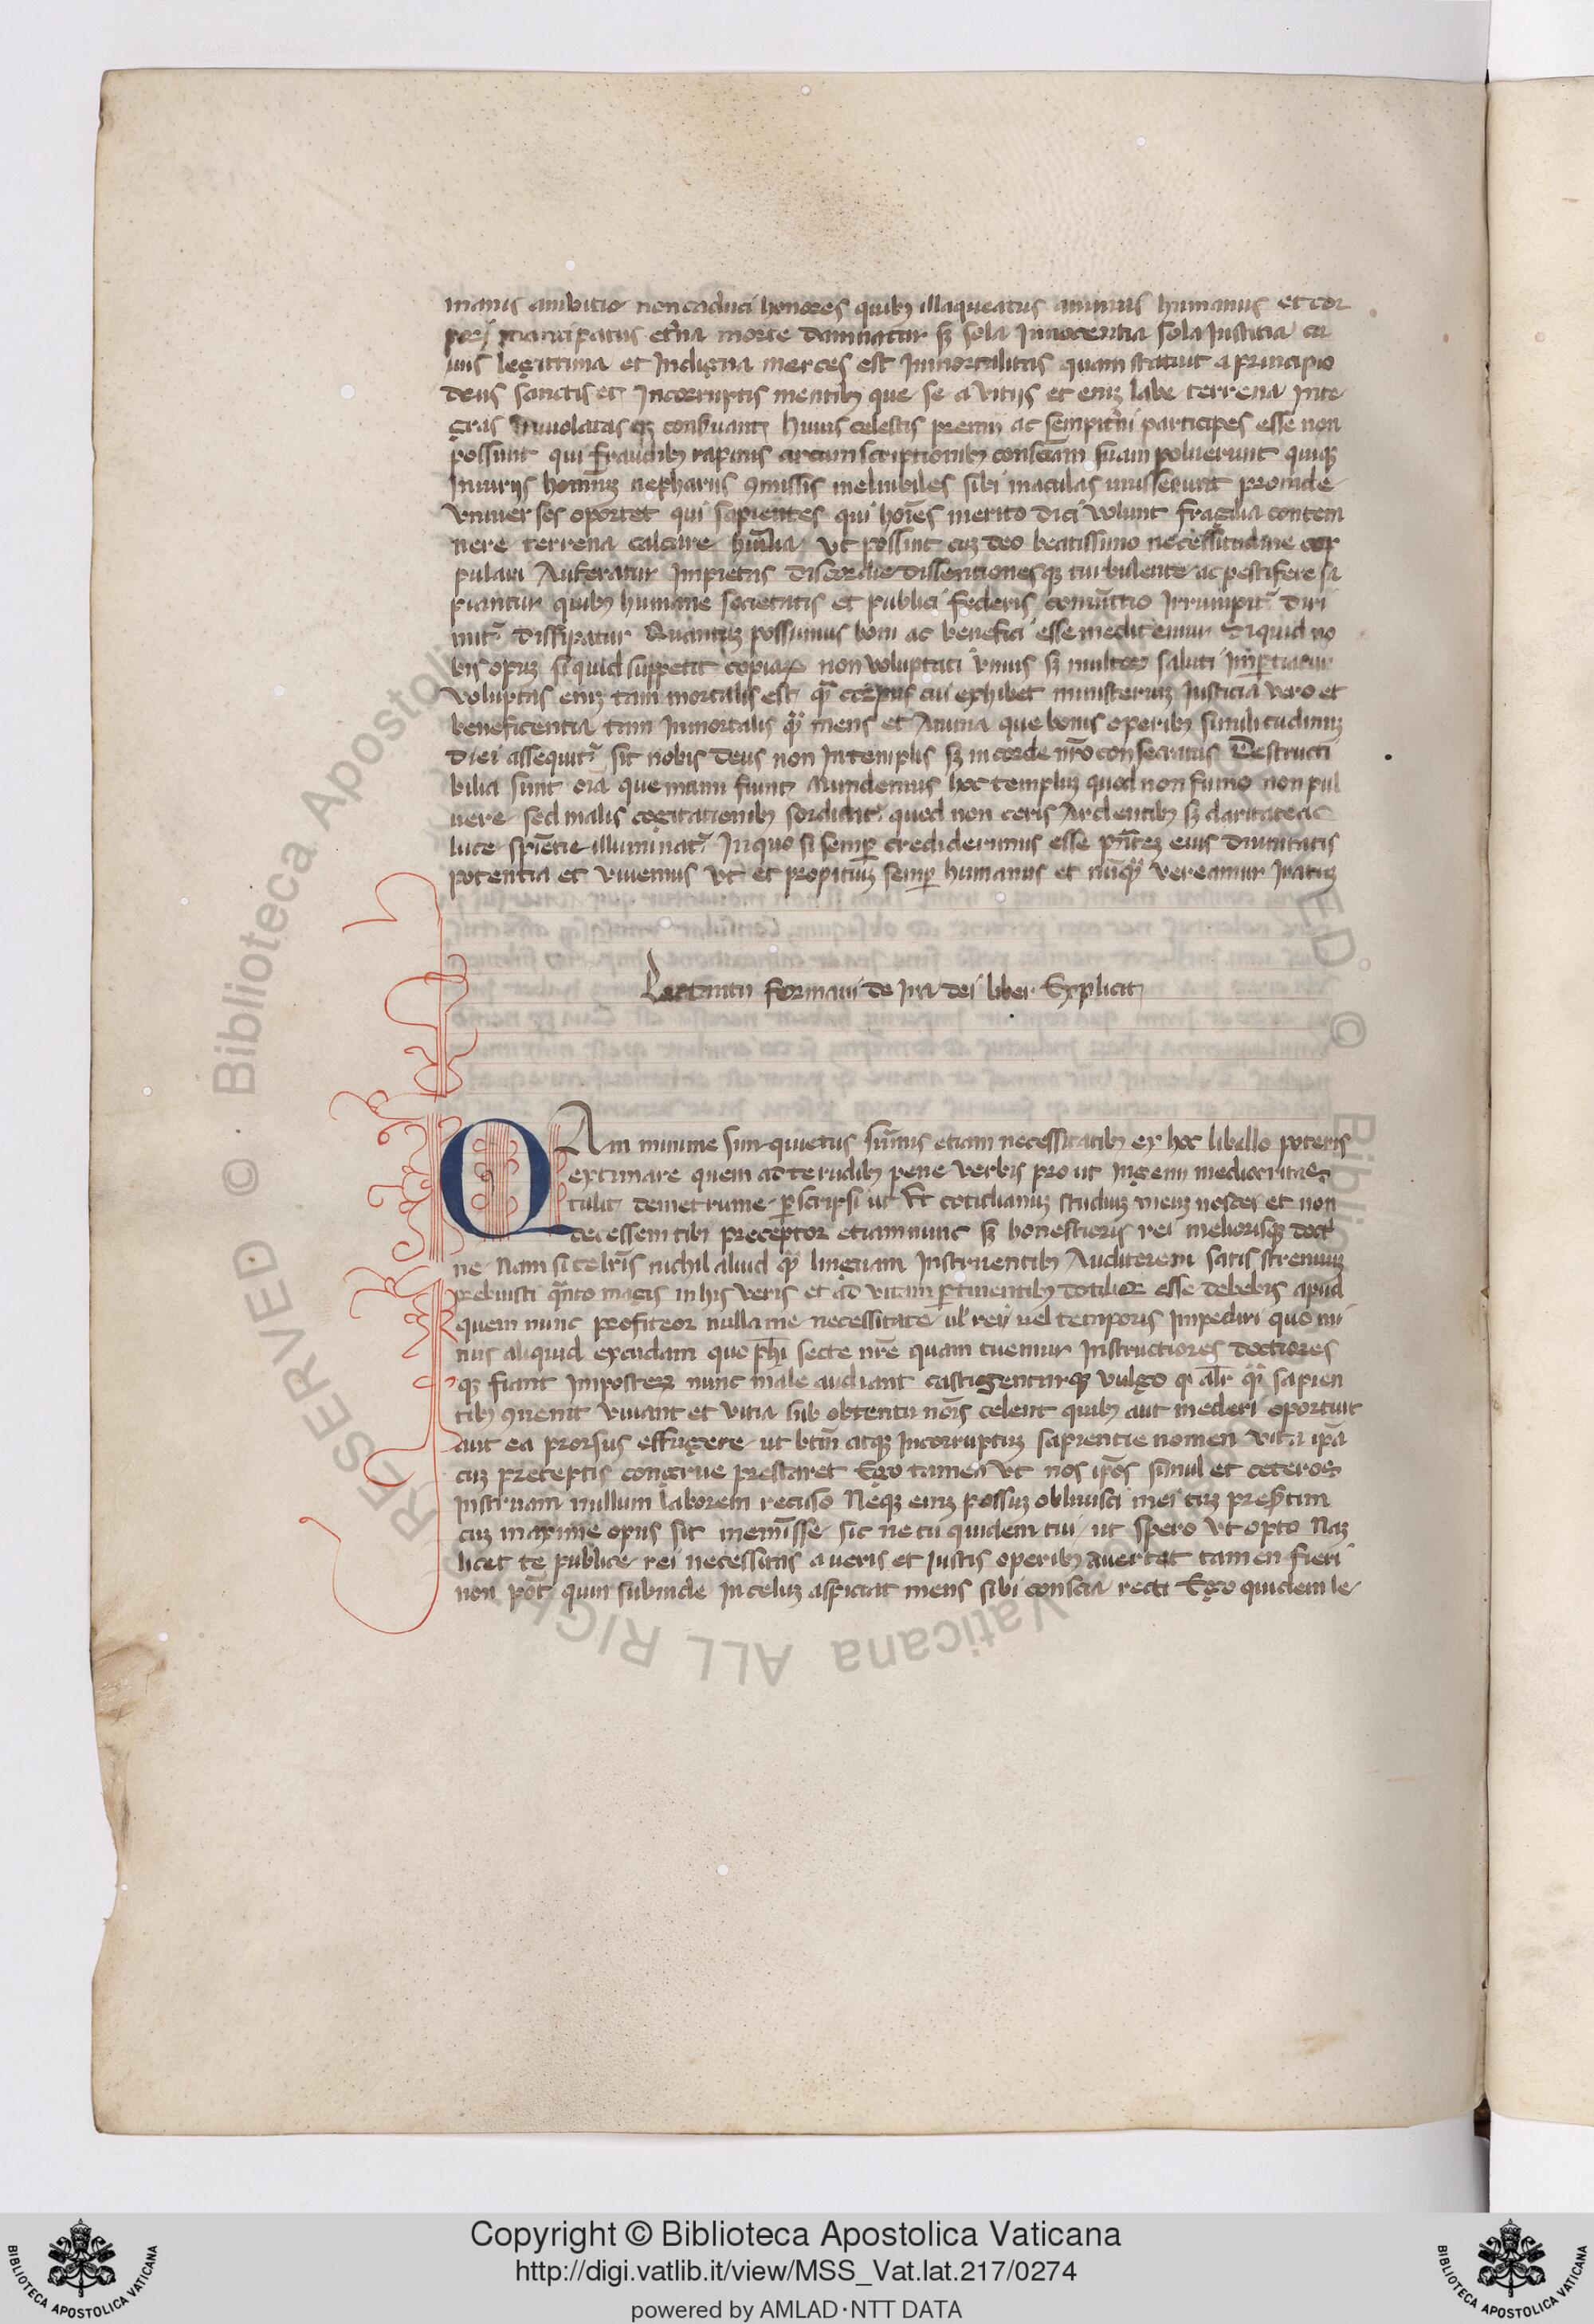 inanis ambitio non caduci honores quibꝫ illaqueatus animus humanus et cor
pori mancipatus et̾na morte damnatur sꝫ sola Innocentia sola Iustitia cu
ius legittima et Indigna merces est Immortalitas quam statuit a principio
deus sanctis et Incorruptis mentibꝫ que se a vitijs et eniꝫ labe terrena Inte
gras Inuiolatas qꝫ conẜuant Huius celestis premij ac sempit̾ni participes esse non
possunt qui fraudibꝫ rapinis circumscriptionibꝫ consciam suam poluerunt quiqꝫ
Iniurijs hominꝫ nepharijs ꝯmissis ineluibiles sibi maculas inusserunt proinde
vniuersos oportet qui sapientes qui hoīes merito dici volunt fragilia contem
nere terrena calcare humīlia vt possint cuꝫ deo beatissimo necessitudine cop
pulari Auferatur Impietas discordie dissentionesqꝫ turbulente ac pestifere sa
piantur quibꝫ humane societatis et publici federis coniūctio Irrumpit᷑ diri
mit᷑ dissipatur Quantuꝫ possumus boni ac benefici esse meditemur si quid no
bis opuꝫ si quid suppetit copiaꝝ non voluptati vnius sꝫ multoꝝ saluti Imꝑtiatur
voluptas eniꝫ tam mortalis est qᷓ corpus cui exhibet ministeriuꝫ Iusticia vero et
beneficentia tam Inmortalis qᷓ mens et Anima que bonis operibꝫ similitudineꝫ
diei assequit᷑ sit nobis deus non In templis sꝫ in corde nr̄o consecratus Destructi
bilia sunt oīa que manu fiunt Mundemus hoc templuꝫ quod non fumo non pul
uere sed malis cogitationibꝫ sordidat᷑ quod non ceris Ardentibꝫ sꝫ claritate ac
luce sapīetie illuminat᷑ In quo si semꝑ crediderimus esse pn̄teꝫ eius diuinitatis
potentia et viuemus vt et propitiuꝫ semꝑ humanus et nūqᷓ vereamur Iratuꝫ
Lactantij formiani de Ira dei liber Explicit
QAm minime sim quietus sum̄is etiam necessitatibꝫ ex hoc libello poteris
extimare quem ad te rudibꝫ pene verbis prout Ingenij mediocritas
tulit demetriane ꝑscripsi ut Et cotidianuꝫ studiuꝫ meuꝫ nosces et non
decessem tibi preceptor etiam nunc sꝫ honestioris rei meliorisqꝫ doctͥ
ne Nam si celebrīs nichil aliud qᷓ linguam Instruentibꝫ Auditorem satis strenuuꝫ
prebuisti qᷓnto magis in his veris et ad vitam ꝑtinentibꝫ docilior esse debebis apud
quem nunc profiteor nulla me necessitate ul̾ rei uel temporis Impediri quo mi
nus aliquid excudam quo phī secte nr̄e quam tuemur Instructiores doctiores
qꝫ fiant Imposteꝝ nunc male audiant castigenturqꝫ vulgo qͥ al̾r qᷓ sapien
tibꝫ ꝯuenit viuant et vitia sub obtentu nōis celent quibꝫ aut mederi oportuit
aut ea prorsus effugere ut btm̄ atqꝫ Incorruptuꝫ sapientie nomen vita ip̄a
cuꝫ preceptis congrue prestaret Ego tamen vt nos ip̄os simul et ceteros
Instruam nullum laborem recuso Neqꝫ eniꝫ possuꝫ obliuisci mei tuꝫ preẜtim
cuꝫ maxime opus sit memīsse sic ne tu quidem tui ut spero vt opto Naꝫ
licet te publice rei necessitas a veris et Iustis operibꝫ auertat tamen fieri
non pōt quin subinde In celuꝫ aspiciat mens sibi conscia recti Ego quidem le
Copyright © Biblioteca Apostolica Vaticana
http://digi.vatlib.it/view/MSS_Vat.lat.217/0274
powered by AMLAD·NTT DATA